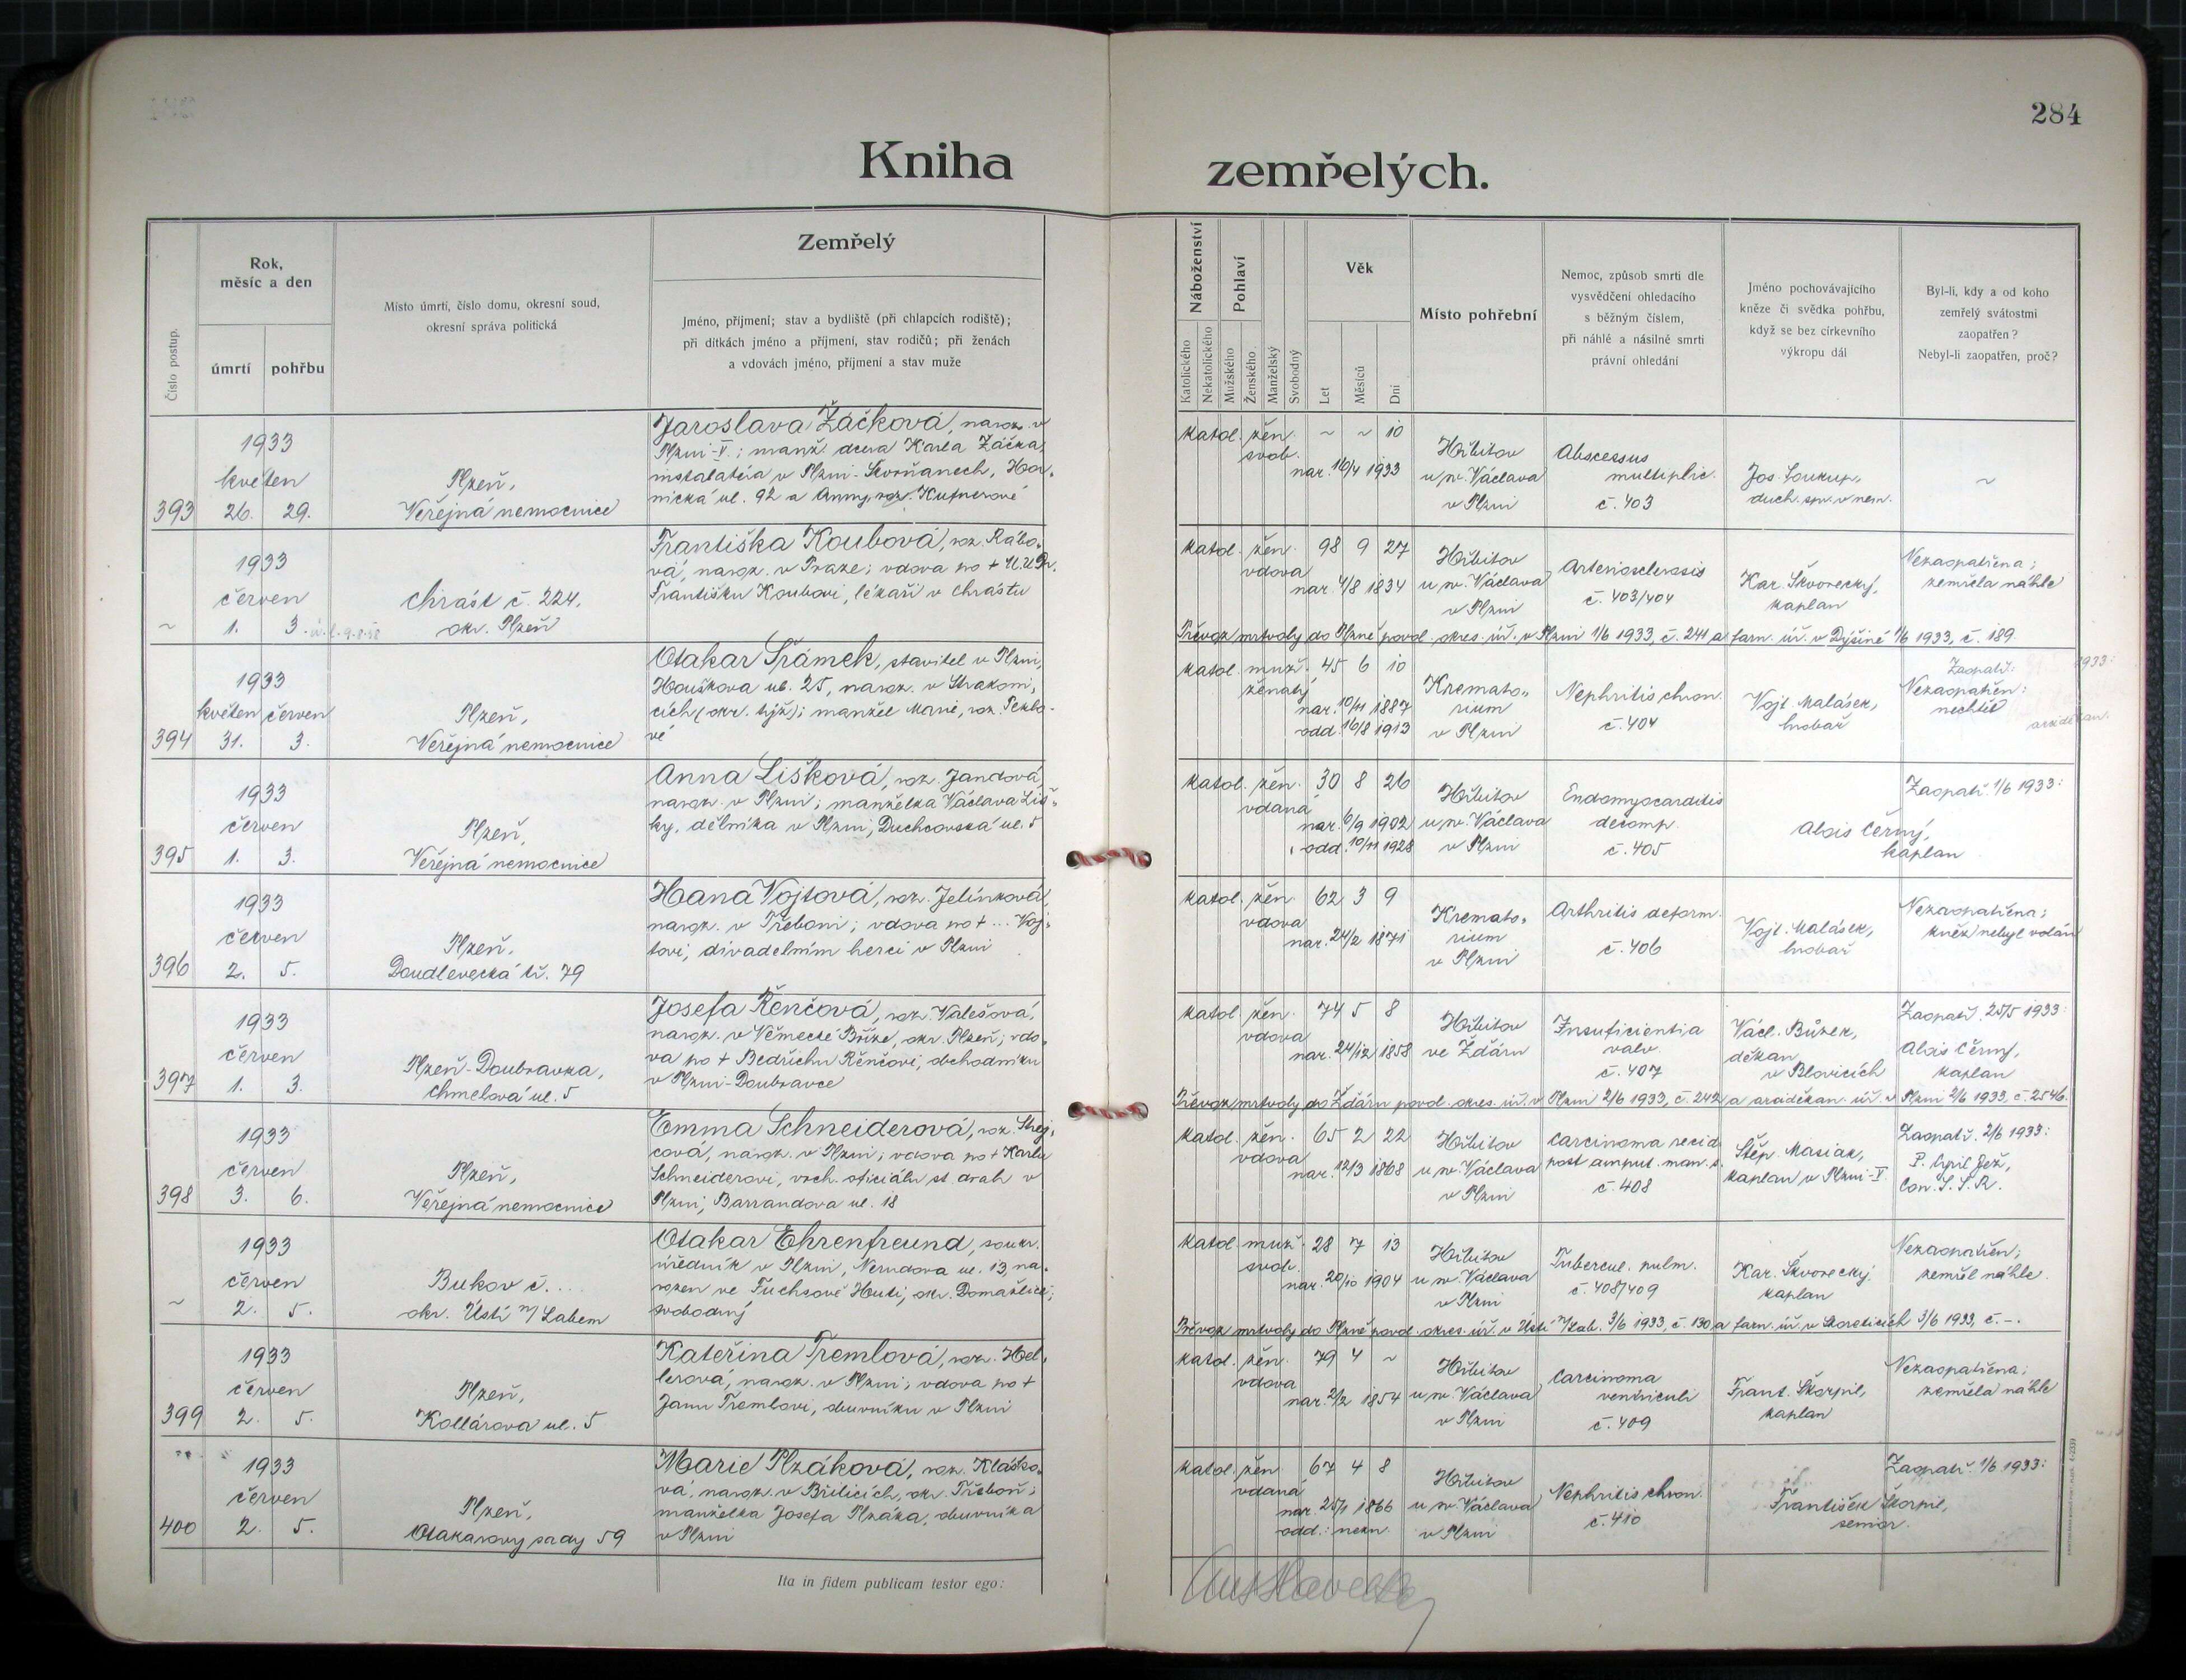 284
Kniha zemřelých.
Číslo postup.
Rok,
měsíc a den
úmrtí
pohřbu
Místo úmrtí, číslo domu, okresní soud,
okresní správa politická
Zemřelý
Jméno, příjmení; stav a bydliště (při chlapcích rodiště);
při dítkách jméno a příjmení, stav rodičů; při ženách
a vdovách jméno, příjmení a stav muže
Náboženství
Katolického
Nekatolického
Pohlaví
Mužského
Ženského
Manželský
Svobodný
Věk
Let
Měsíců
Dní
Místo pohřební
Nemoc, způsob smrti dle
vysvědčení ohledacího
s běžným číslem,
při náhlé a násilné smrti
právní ohledání
Jméno pochovávajícího
kněze či svědka pohřbu,
když se bez církevního
výkropu dál
Byl-li, kdy a od koho
zemřelý svátostmi
zaopatřen?
Nebyl-li zaopatřen, proč?
393
1933
květen
26. 29.
Plzeň,
Veřejná nemocnice
Jaroslava Žáčková, naroz. v
Plzni-V.; manž. dcera Karla Žáčka,
instalatéra v Plzni-Skvrňanech, Hor-
nická ul. 92 a Anny, roz. Kufnerové
katol. žen. ~ ~ 10
svob.
nar. 16/4 1933
Hřbitov
u sv. Václava
v Plzni
Abscessus
multiplic.
č. 403
Jos. Soukup,
duch. spr. v nem.
~
~
1933
červen
1. 3.
Chrást č. 224,
okr. Plzeň
Františka Koubová, roz. Rábo-
vá, naroz. v Praze; vdova po + M.U.Dr.
Františku Koubovi, lékaři v Chrástu
katol. žen. 98 9 27
vdova
nar. 4/8 1834
Hřbitov
u sv. Václava
v Plzni
Arteriosclerosis
č. 403/404
Kar. Škvorecký,
kaplan
Nezaopatřena;
zemřela náhle
Převoz mrtvoly do Plzně povol. okres. úř. v Plzni 1/6 1933, č. 241 a farn. úř. v Dýšině 1/6 1933, č. 189.
394
1933
květen červen
31. 3.
Plzeň,
Veřejná nemocnice
Otakar Šrámek, stavitel v Plzni,
Houškova ul. 25, naroz. v Strakoni-
cích (okr. týž); manžel Marie, roz.
vé
katol. muž. 45 6 10
ženatý
nar. 10/11 1887
odd. 16/8 1913
Kremato-
rium
v Plzni
Nephritis chron.
č. 404
Vojt. Malásek,
hrobař
Zaopatř.
1933:
Nezaopatřen:
nechtěl
arciděkan.
395
1933
červen
1. 3.
Plzeň,
Veřejná nemocnice
Anna Lišková, roz. Jandová,
naroz. v Plzni; manželka Václava Liš-
ky, dělníka v Plzni, Duchcovská ul. 5
katol. žen. 30 8 26
vdaná
nar. 6/9 1902
odd. 10/11 1928
Hřbitov
u sv. Václava
v Plzni
Endomyocarditis
decomp.
č. 405
Alois Černý,
kaplan
Zaopatř. 1/6 1933:
396
1933
červen
2. 5.
Plzeň,
Doudlevecká tř. 79
Hana Vojtová, roz. Jelínková,
naroz. v Třeboni; vdova po + ... Voj-
tovi, divadelním herci v Plzni
katol. žen. 62 3 9
vdova
nar. 24/2 1871
Kremato-
rium
v Plzni
Arthritis deform.
č. 406
Vojt. Malásek,
hrobař
Nezaopatřena;
kněz nebyl volán
397
1933
červen
1. 3.
Plzeň-Doubravka,
Chmelová ul. 5
Josefa Řenčová, roz. Valešová,
naroz. v Německé Bříze, okr. Plzeň; vdo-
va po + Bedřichu Řenčovi, obchodníku
v Plzni-Doubravce
katol. žen. 74 5 8
vdova
nar. 24/12 1858
Hřbitov
ve Žďáru
Insuficientia
valv.
č. 407
Václ. Bůzek,
děkan
v Blovicích
Zaopatř. 25/5 1933:
Alois Černý,
kaplan
Převoz mrtvoly do Žďáru povol. okres. úř. v Plzni 2/6 1933, č. 242 a arciděkan. úř. v Plzni 2/6 1933, č. 2546.
398
1933
červen
3. 6.
Plzeň,
Veřejná nemocnice
Emma Schneiderová, roz. Strej-
cová, naroz. v Plzni; vdova po + Karlu
Schneiderovi, vrch. oficiálu st. drah v
Plzni, Barrandova ul. 18
katol. žen. 65 2 22
vdova
nar. 12/3 1868
Hřbitov
u sv. Václava
v Plzni
Carcinoma recid.
post amput. mam.
č. 408
Štěp. Masiar,
kaplan v Plzni-V.
Zaopatř. 2/6 1933:
P. Cyril Jež,
Con. S. S. R.
~
1933
červen
2. 5.
Bukov č. ...
okr. Ústí n/Labem
Otakar Ehrenfreund, soukr.
úředník v Plzni, Nerudova ul. 13, na-
rozen ve Fuchsově Huti, okr. Domažlice;
svobodný
katol. muž. 28 7 13
svob.
nar. 20/10 1904
Hřbitov
u sv. Václava
v Plzni
Tubercul. pulm.
č. 408/409
Kar. Škvorecký,
kaplan
Nezaopatřen;
zemřel náhle.
Převoz mrtvoly do Plzně povol. okres. úř. v Ústí n/Lab. 3/6 1933, č. 130 a farn. úř. v Skoroticích 3/6 1933, č. -.
399
1933
červen
2. 5.
Plzeň,
Kollárova ul. 5
Kateřina Tremlová, roz. Hel-
lerova, naroz. v Plzni; vdova po +
Janu Tremlovi, obuvníku v Plzni
katol. žen. 79 4 ~
vdova
nar. 2/2 1854
Hřbitov
u sv. Václava
v Plzni
Carcinoma
ventriculi
č. 409
Frant. Škorpil,
kaplan
Nezaopatřena;
zemřela náhle
400
1933
červen
2. 5.
Plzeň,
Otakarovy sady 59
Marie Plzáková, roz. Klásko-
vá, naroz. v Břilicích, okr. Třeboň;
manželka Josefa Plzáka, obuvníka
v Plzni
katol. žen. 67 4 8
vdaná
nar. 25/1 1866
odd.: nezn.
Hřbitov
u sv. Václava
v Plzni
Nephritis chron.
č. 410
František Škorpil,
senior.
Zaopatř. 1/6 1933:
Ita in fidem publicam testor ego: